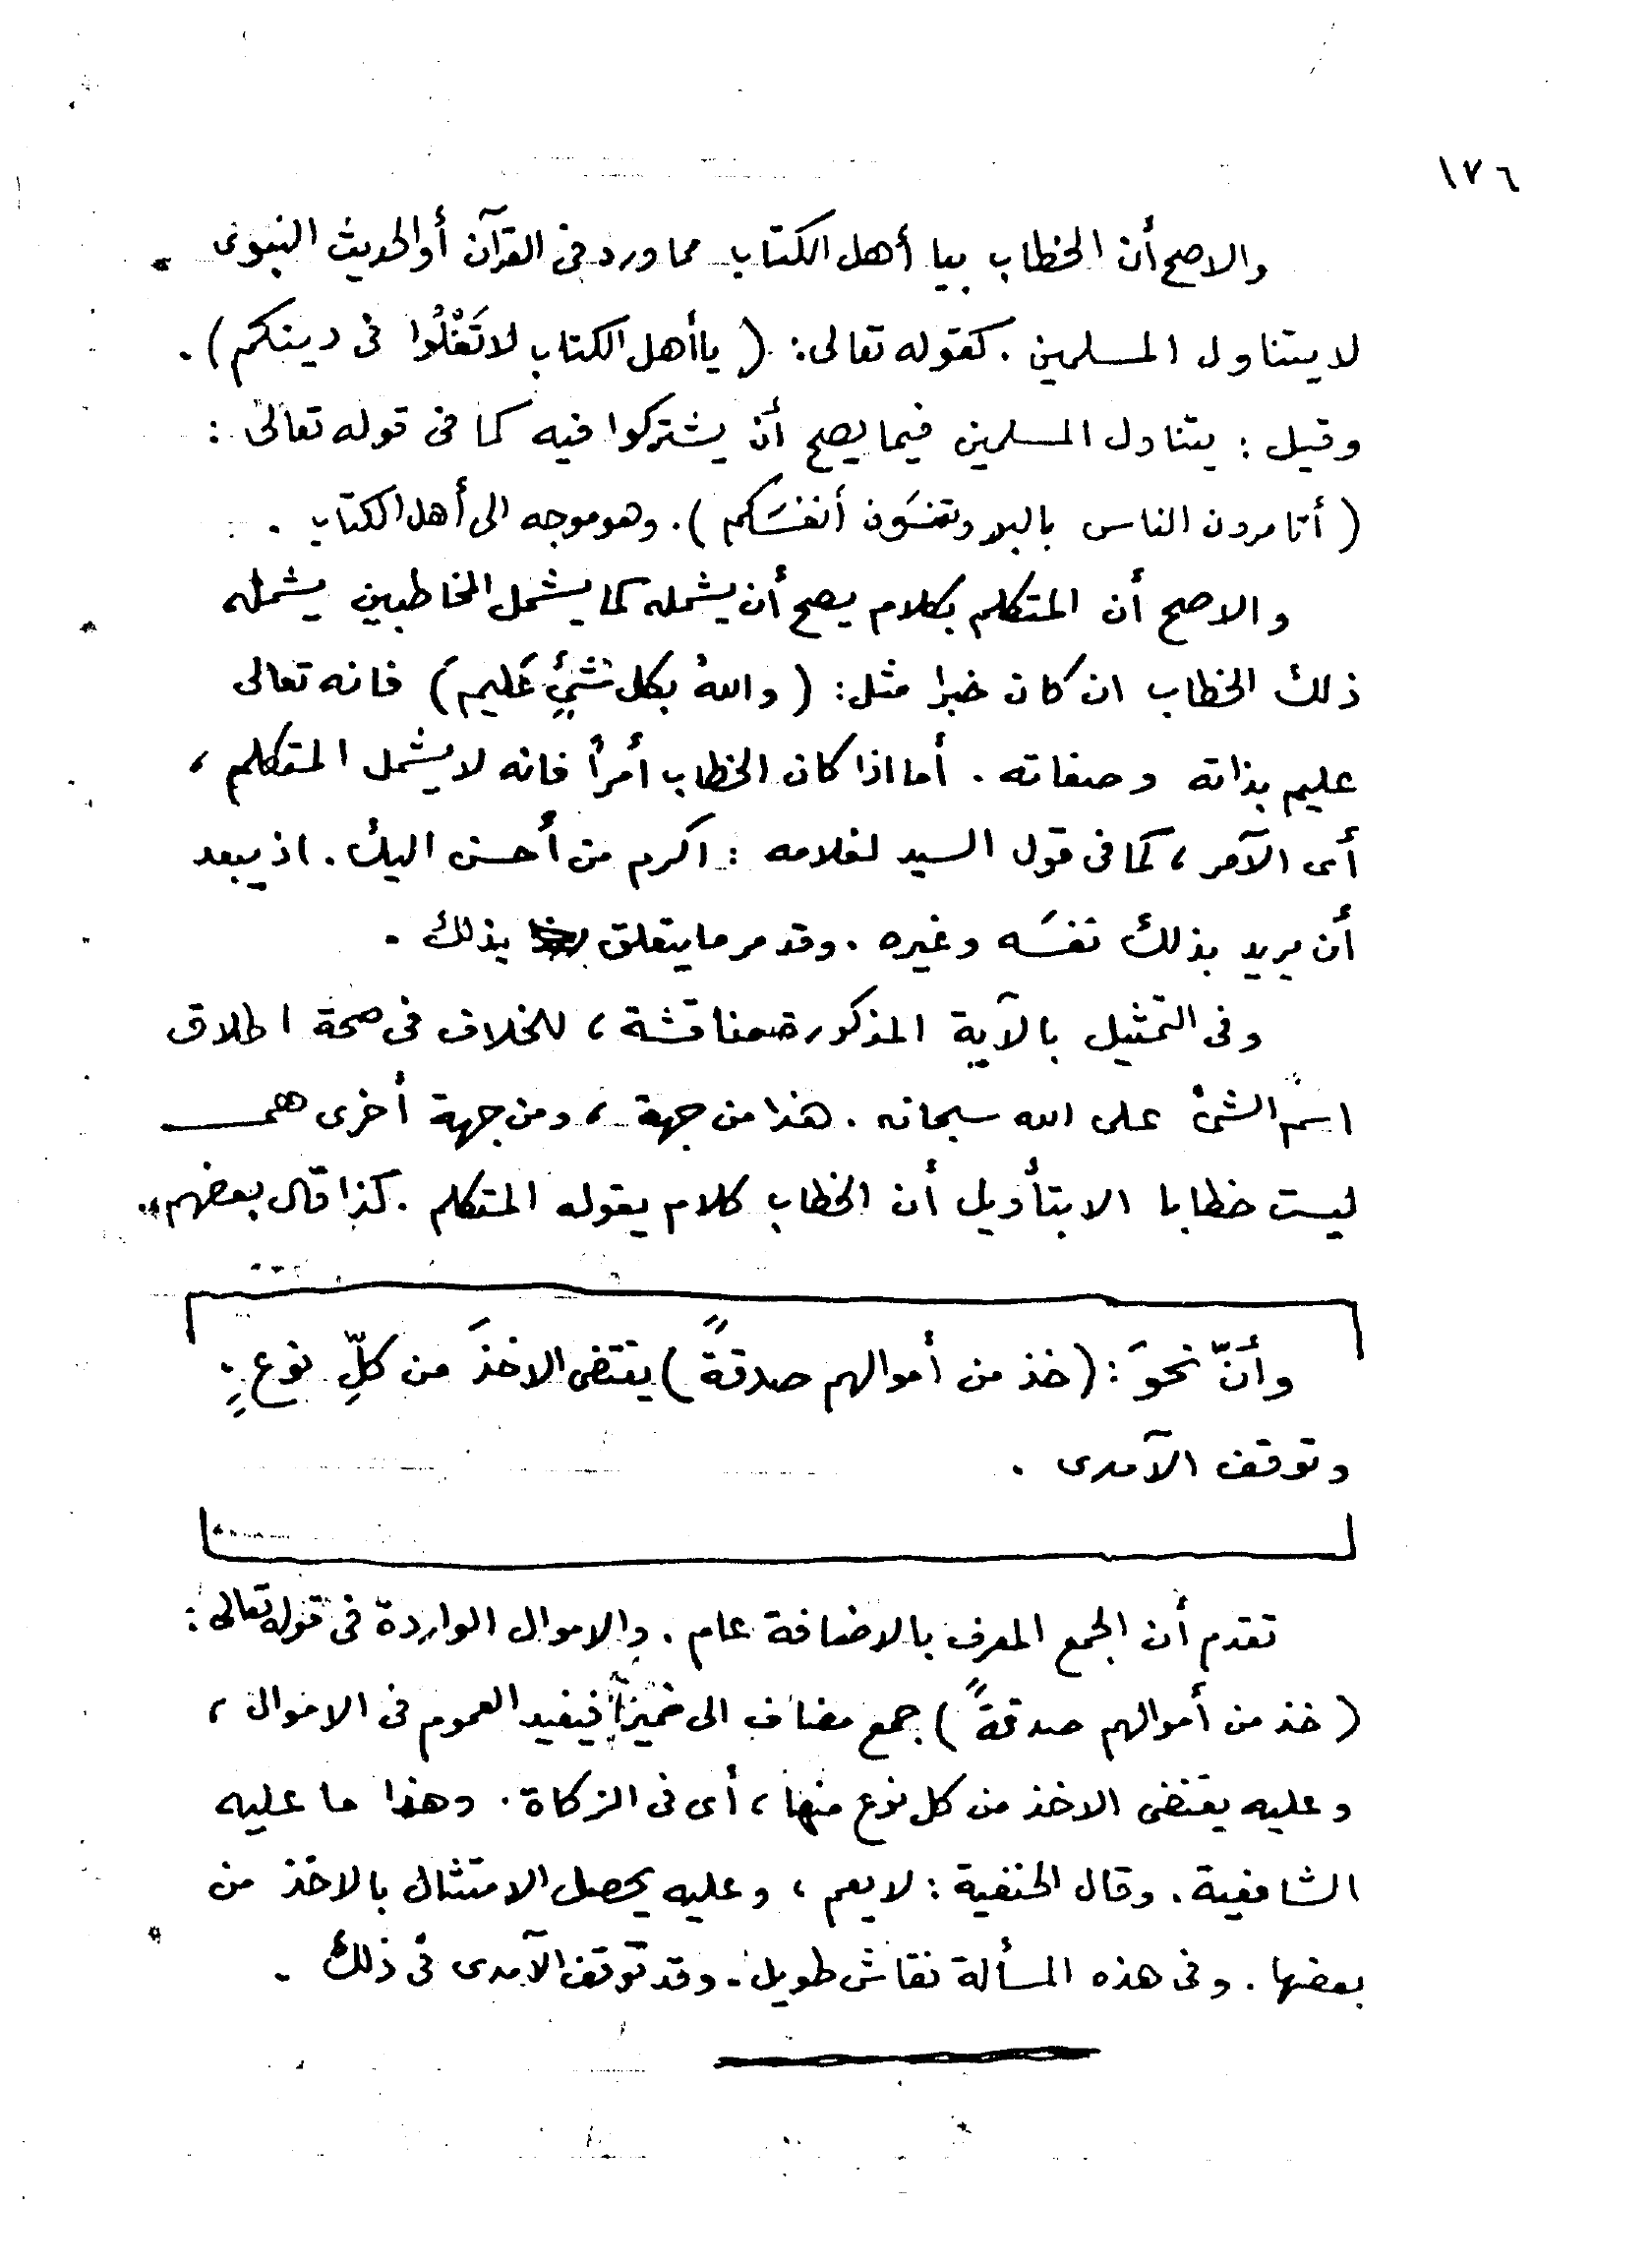 ١٧٦
والاصح أن الخطاب بيا أهل الكتاب مما ورد فى القرآن أو الحديث النبوى
لا يتناول المسلمين . كقوله تعالى : ( يا أهل الكتاب لا تَغْلُوا فى دينكم ) .
وقيل : يتناول المسلمين فيما يصح أن يشتركوا فيه كما فى قوله تعالى :
( أتامرون الناس بالبر وتنسَون أنفسَكم ) . وهو موجه الى أهل الكتاب .
والاصح أن المتكلم بكلام يصح أن يشمله كما يشمل المخاطبين يشمله
ذلك الخطاب ان كان خبرا مثل : ( واللهُ بكل شئٍ عَليم ) فانه تعالى
عليم بذاته وصفاته . أما اذا كان الخطاب أمراً فانه لا يشمل المتكلم ،
أى الآمر ، كما فى قول السيد لغلامه : اكرم من أحسن اليك . اذ يبعد
أن يريد بذلك نفسَه وغيره . وقد مر ما يتعلق بذلك .
وفى التمثيل بالآية المذكورة مناقشة ، للخلاف فى صحة اطلاق
اسم الشئ على الله سبحانه . هذا من جهة ، ومن جهة أخرى هى
ليست خطابا الا بتأويل أن الخطاب كلام يقوله المتكلم . كذا قال بعضهم .
وأنّ نحوَ : ( خذ من أموالهم صدقةً ) يقتضى الاخذَ من كلِّ نوعٍ .
وتوقف الآمدى .
تقدم أن الجمع المعرف بالاضافة عام . والاموال الواردة فى قوله تعالى :
( خذ من أموالهم صدقةً ) جمع مضاف الى ضمير فيفيد العموم فى الاموال ،
وعليه يقتضى الاخذ من كل نوع منها ، أى فى الزكاة . وهذا ما عليه
الشافعية . وقال الحنفية : لا يعم ، وعليه يحصل الامتثال بالاخذ من
بعضها . وفى هذه المسألة نقاش طويل . وقد توقف الآمدى فى ذلك .